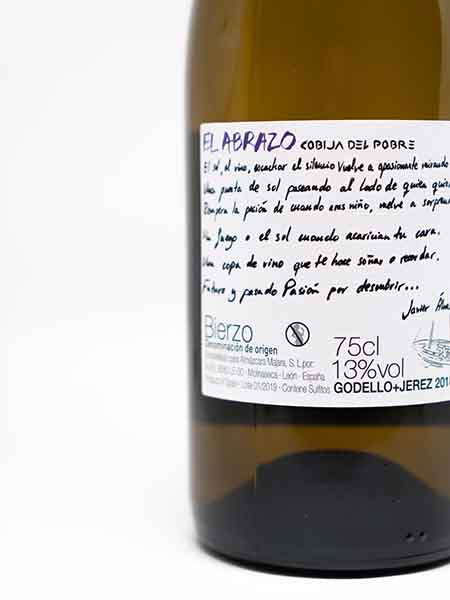 EL ABRAZO COBIJA DEL POBRE
El sol, el vino, escuchar el silencio vuelve a apasionante mirando
Una punta de sol paseando al lado de quien quie
Recupera la pasión de cuando eras niño, vuelve a sorpren
Un fuego o el sol cuando acarician tu cara.
Una copa de vino que te hace soñar o recordar.
Futuro y pasado Pasión por descubrir...
Javier Álva
Bierzo
Denominación de origen
para Almázcara Majara, S. L. por:
Molinaseca - León - España
Lote 01/2019 - Contiene Sulfitos
75cl
13%vol
GODELLO+JEREZ 201